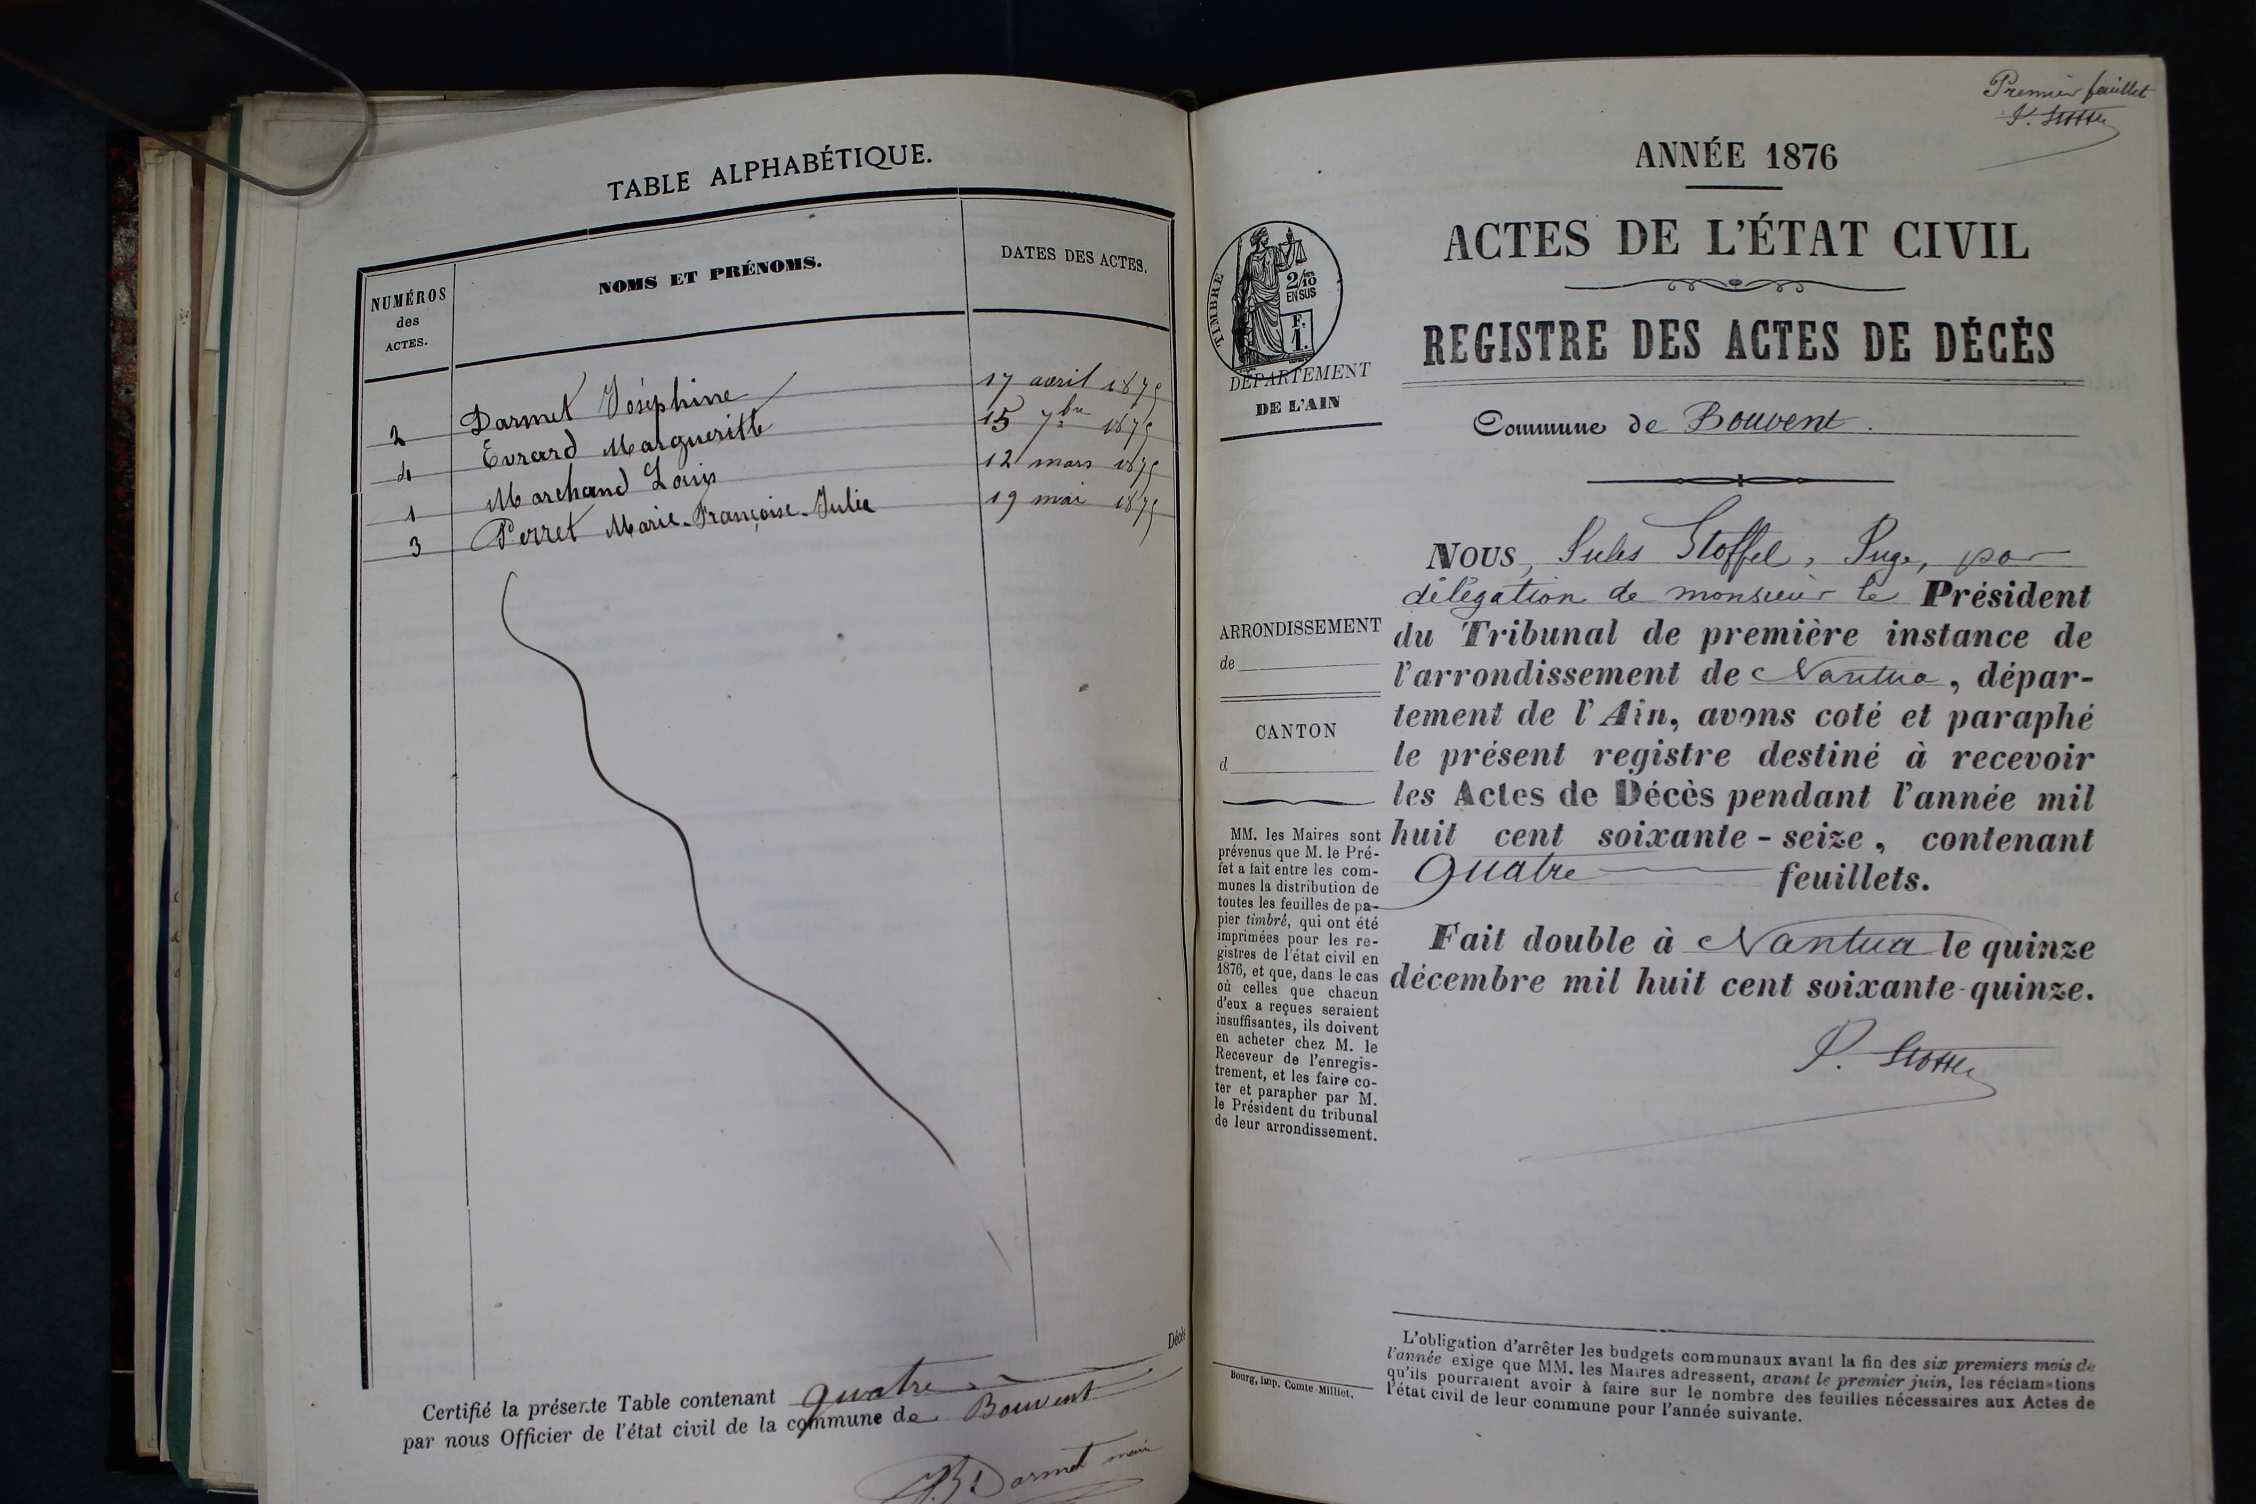 TABLE ALPHABÉTIQUE.
NUMÉROS
des
ACTES.
NOMS ET PRÉNOMS.
DATES DES ACTES.
2 Darmet Joséphine 17 avril 1875
4 Evrard Margueritte 15 7bre 1875
1 Marchand Louis 12 mars 1875
3 Perret Marie-Françoise-Julie 19 mai 1875
Décès
Certifié la présente Table contenant quatre
par nous Officier de l'état civil de la commune de Bouvent
Darmet maire
Premier feuillet
ANNÉE 1876
ACTES DE L'ÉTAT CIVIL
REGISTRE DES ACTES DE DÉCÈS
TIMBRE
2/10
EN SUS
F.
1.
DÉPARTEMENT
DE L'AIN
Commune de Bouvent.
NOUS, Jules Stoffel, Juge, par
délégation de monsieur le Président
du Tribunal de première instance de
l'arrondissement de Nantua, dépar-
tement de l'Ain, avons coté et paraphé
le présent registre destiné à recevoir
les Actes de Décès pendant l'année mil
huit cent soixante-seize, contenant
quatre feuillets.
Fait double à Nantua le quinze
décembre mil huit cent soixante-quinze.
ARRONDISSEMENT
de
CANTON
d
MM. les Maires sont
prévenus que M. le Pré-
fet a fait entre les com-
munes la distribution de
toutes les feuilles de pa-
pier timbré, qui ont été
imprimées pour les re-
gistres de l'état civil en
1876, et que, dans le cas
où celles que chacun
d'eux a reçues seraient
insuffisantes, ils doivent
en acheter chez M. le
Receveur de l'enregis-
trement, et les faire co-
ter et parapher par M.
le Président du tribunal
de leur arrondissement.
Bourg, imp. Comte-Milliet.
L'obligation d'arrêter les budgets communaux avant la fin des six premiers mois de
l'année exige que MM. les Maires adressent, avant le premier juin, les réclamations
qu'ils pourraient avoir à faire sur le nombre des feuilles nécessaires aux Actes de
l'état civil de leur commune pour l'année suivante.